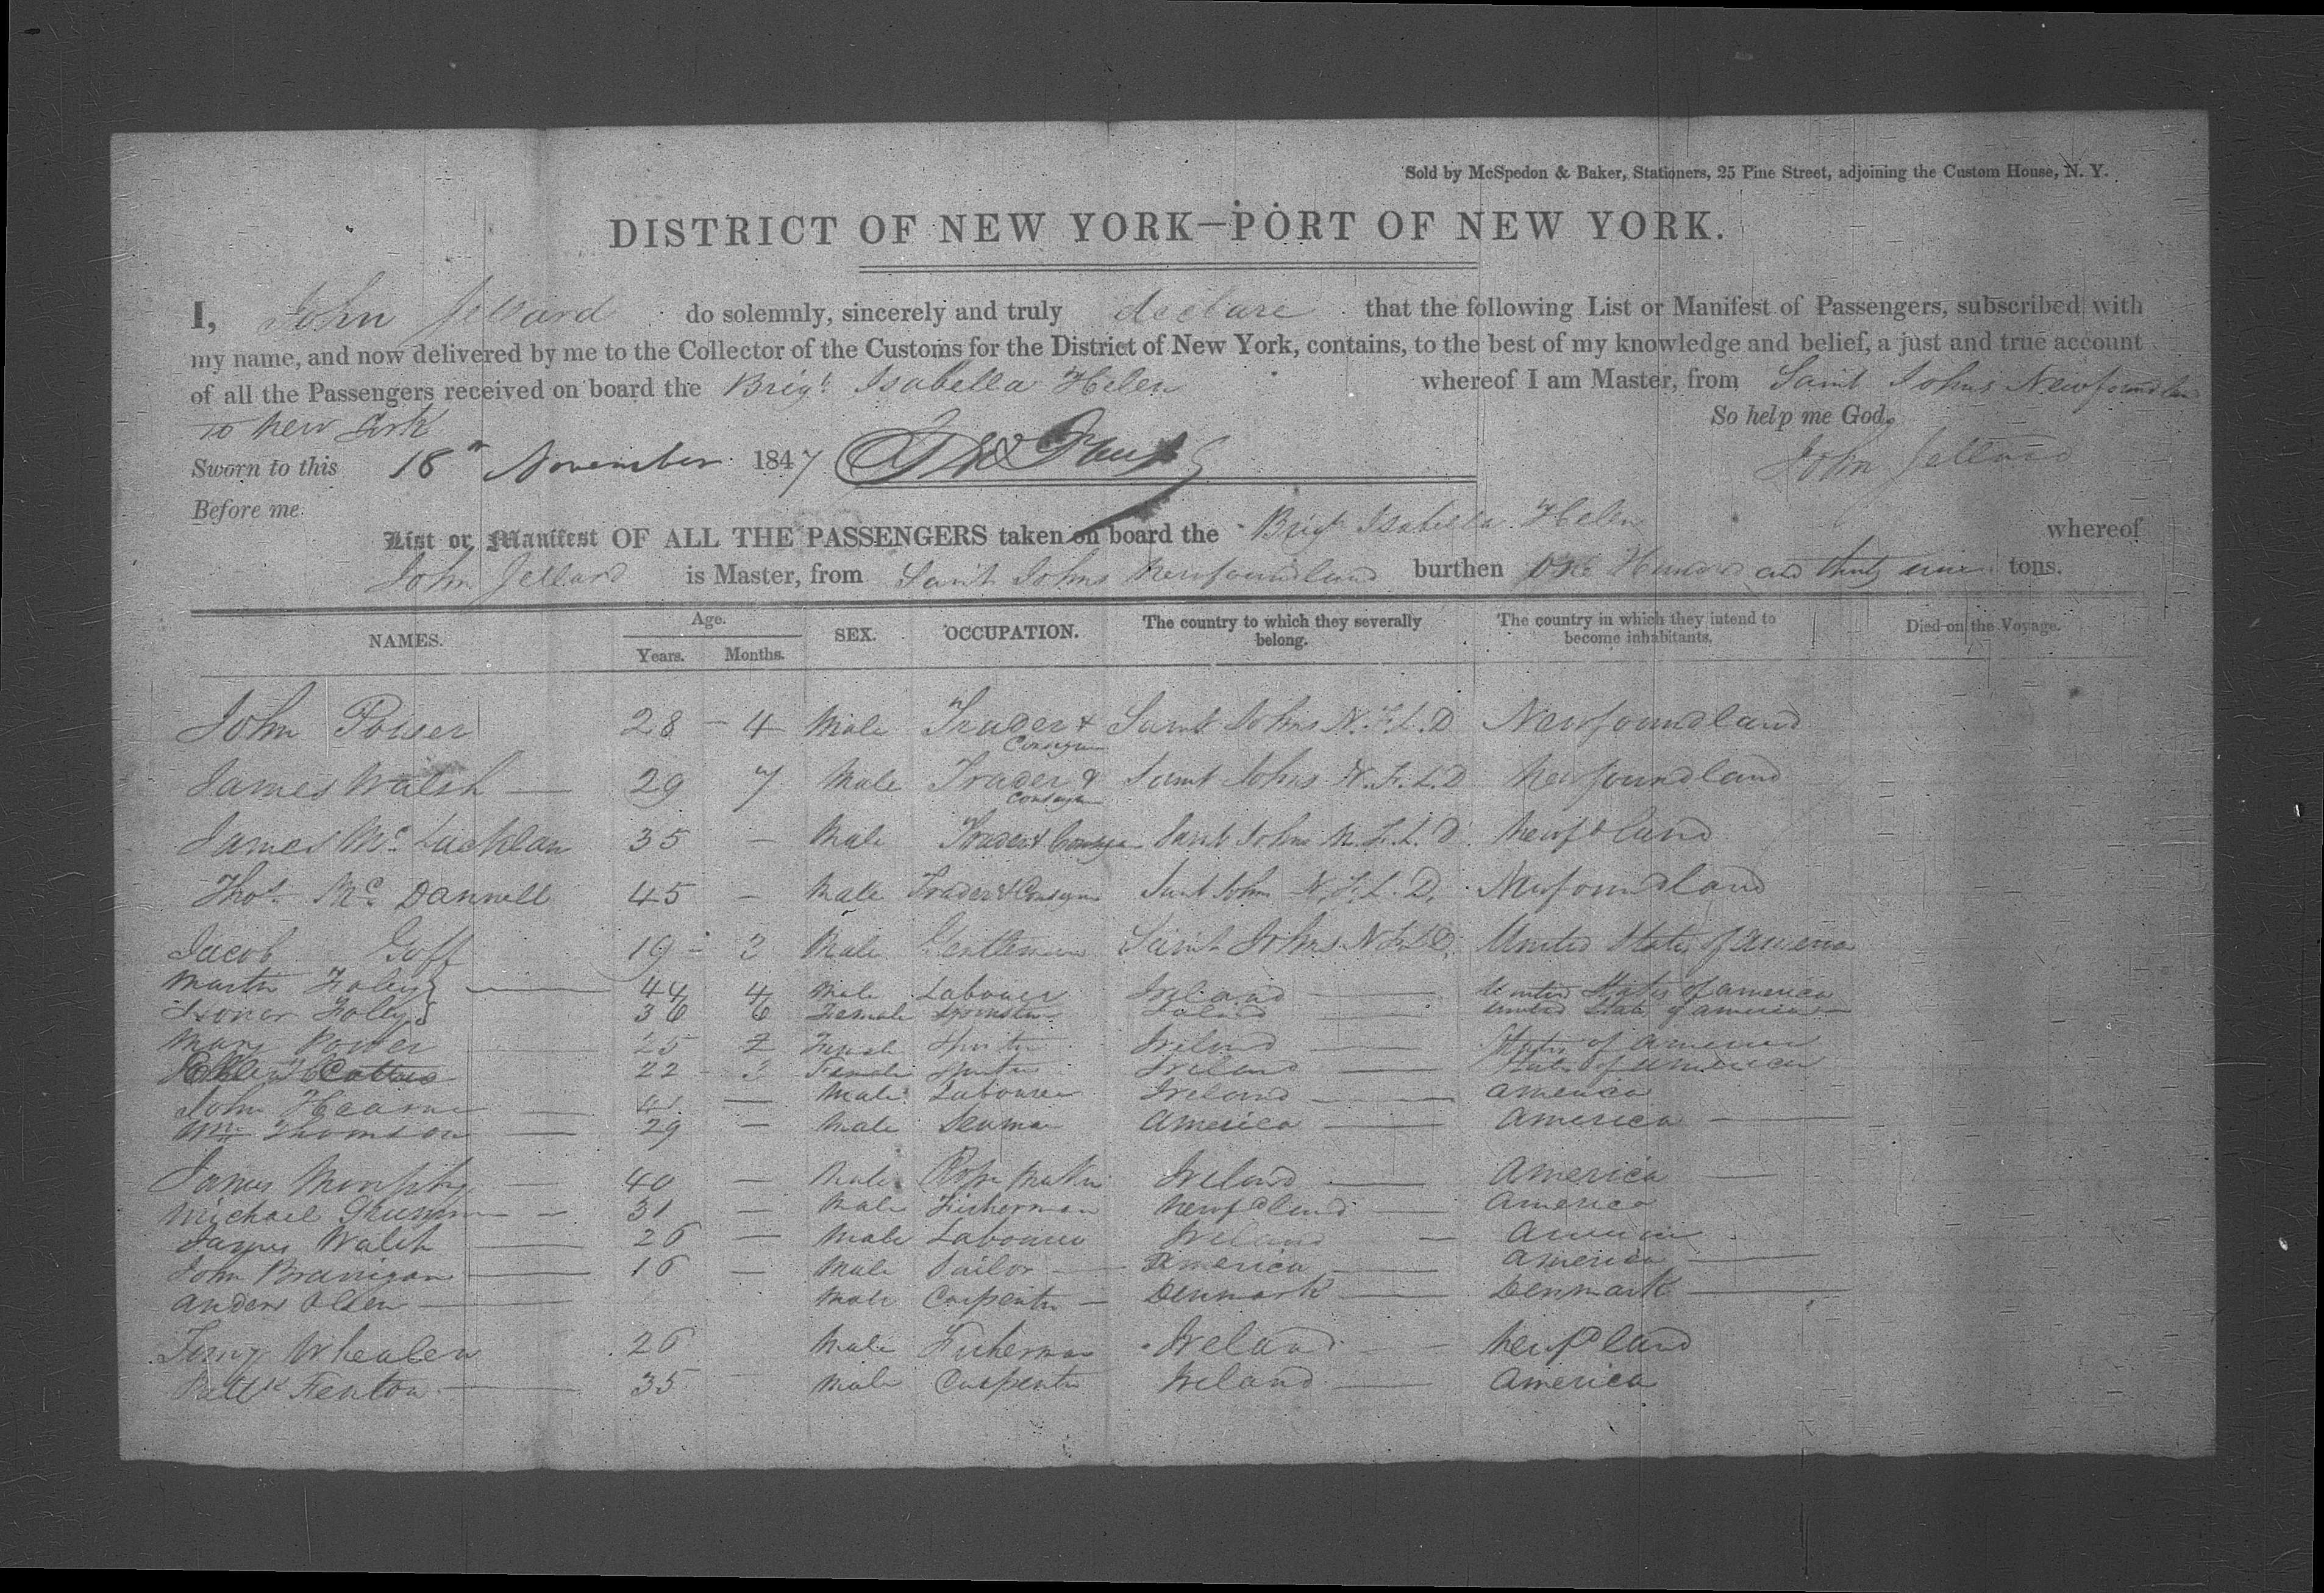 Sold by McSpedon & Baker, Stationers, 25 Pine Street, adjoining the Custom House, N. Y.
DISTRICT OF NEW YORK—PORT OF NEW YORK.
I, John Jellard do solemnly, sincerely and truly declare that the following List or Manifest of Passengers, subscribed with
my name, and now delivered by me to the Collector of the Customs for the District of New York, contains, to the best of my knowledge and belief, a just and true account
of all the Passengers received on board the Brigt Isabella Helen whereof I am Master, from Saint Johns Newfoundland
to New York So help me God.
Sworn to this 18th November 1847 John Jellard
Before me
List or Manifest OF ALL THE PASSENGERS taken on board the Brigt Isabella Helen whereof
John Jellard is Master, from Saint Johns Newfoundland burthen One Hundred and thirty nine tons.
NAMES. Age. Years. Months. SEX. OCCUPATION. The country to which they severally belong. The country in which they intend to become inhabitants. Died on the Voyage.
John Power 28 - 4 Male Trader & Saint Johns N.F.L.D Newfoundland
James Walsh — 29 7 Male Trader & Saint Johns N.F.L.D Newfoundland
James Mc Lachlan 35 — Male Trader & Saint Johns N.F.L.D. Newfdland
Thos. Mc Dannell 45 — Male Trader & Saint Johns N.F.L.D. Newfoundland
Jacob Goff 19 - 3 Male Gentleman Saint Johns N.F.L.D. United States of America
Martin Foley 44 4 Male Labourer Ireland — United States of America
Honor Foley 36 6 Female Spinster Ireland — United States of America
Mary Power — 25 2 Female Spinster Ireland — States of America
22 - 3 Female Spinster Ireland — States of America
John Hearne — 41 — Male Labourer Ireland — America
Wm Thomson — 29 — Male Seaman America — America —
James Murphy — 40 — Male Rope Maker Ireland — America —
Michael — 31 — Male Fisherman Newfdland — America
James Walsh — 26 — Male Labourer Ireland — America
John Branigan — 16 — Male Sailor — America — America —
Anders Olsen — Male Carpenter — Denmark — Denmark —
Timy Whealen 26 Male Fisherman Ireland — Newfdland
Pattk Fenton — 35 Male Carpenter Ireland — America